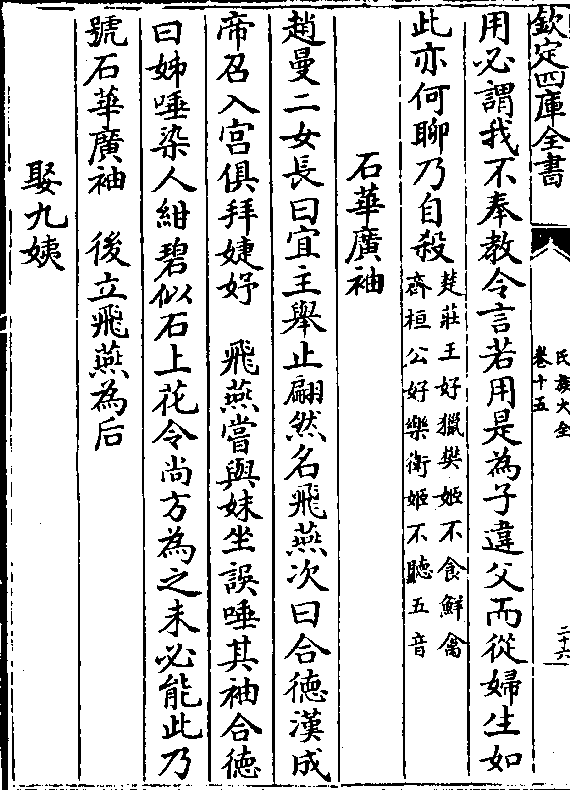 欽定四庫全書
氏族大全
卷十五
二十六
用必謂我不奉教令言若用是為子違父而從婦生如
此亦何聊乃自殺
楚莊王好獵樊姬不食鮮禽
齊桓公好樂衛姬不聽五音
石華廣袖
趙曼二女長曰宜主舉止翩然名飛燕次曰合德漢成
帝召入宫俱拜婕妤　飛燕嘗與妹坐誤唾其袖合德
曰姊唾染人紺碧似石上花令尚方為之未必能此乃
號石華廣袖　後立飛燕為后
娶九姨